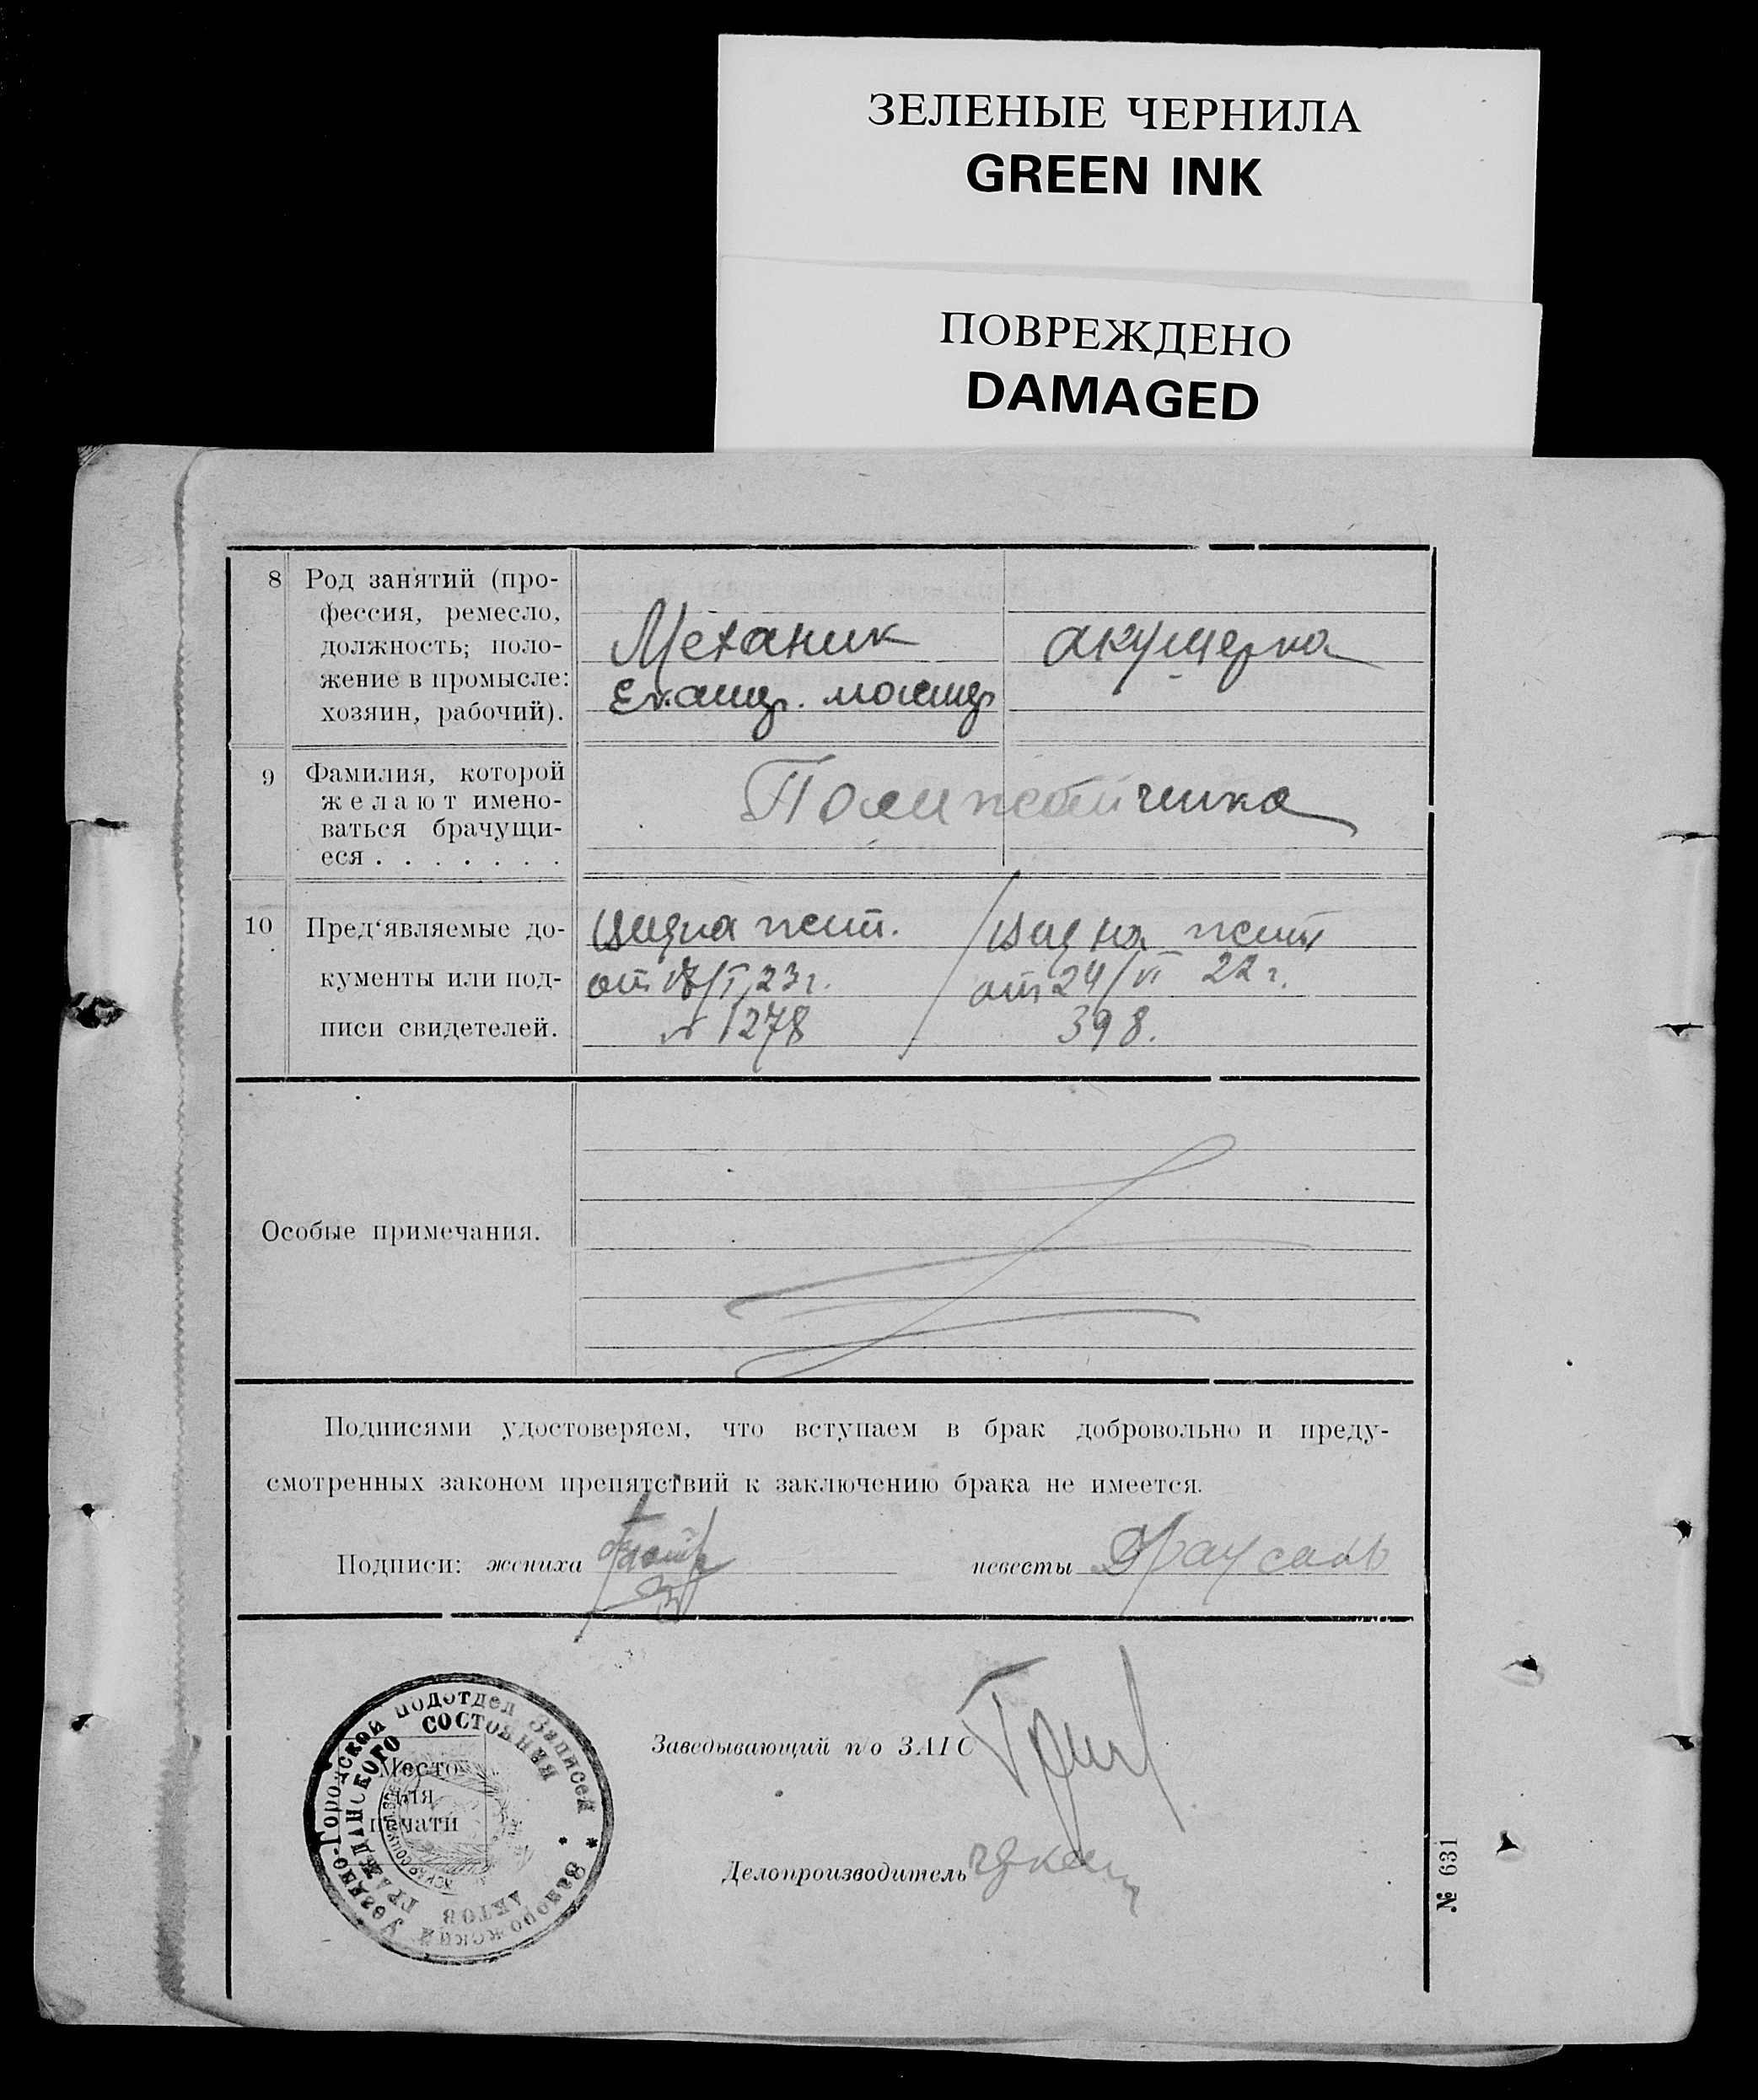 ЗЕЛЕНЫЕ ЧЕРНИЛА
GREEN INK
ПОВРЕЖДЕНО
DAMAGED
8 Род занятий (про-
фессия, ремесло,
должность; поло-
жение в промысле:
хозяин, рабочий).
Механик
акушерка
9 Фамилия, которой
желают имено-
ваться брачущи-
еся . . . . . . .
10 Пред‘являемые до-
кументы или под-
писи свидетелей.
вид на жит.
23 г.
№ 1278
вид на жит
от 24/VI 22 г.
398.
Особые примечания.
Подписями удостоверяем, что вступаем в брак добровольно и преду-
смотренных законом препятствий к заключению брака не имеется.
Подписи: жениха
невесты
Уездно-Городской подотдел Записей * Запорожский *
АКТОВ ГРАЖДАНСКОГО СОСТОЯНИЯ
Место
для
печати
Заведывающий п/о ЗАГС
Делопроизводитель
№ 631